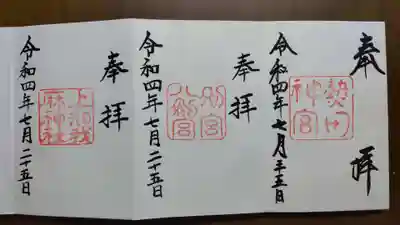 奉拝
熱田
神宮
令和四年七月二十五日
奉拝
別宮
八剣宮
令和四年七月二十五日
奉拝
上知我
麻神社
令和四年七月二十五日